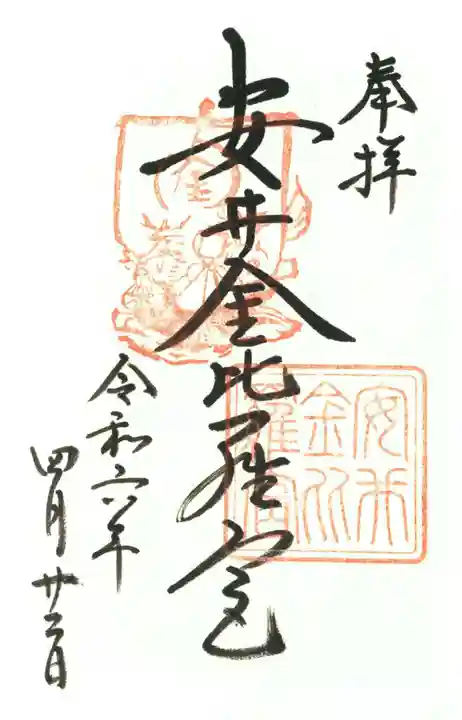 奉拝
安井金比羅宮
令和六年
四月廿二日
金
安井
金比
羅宮